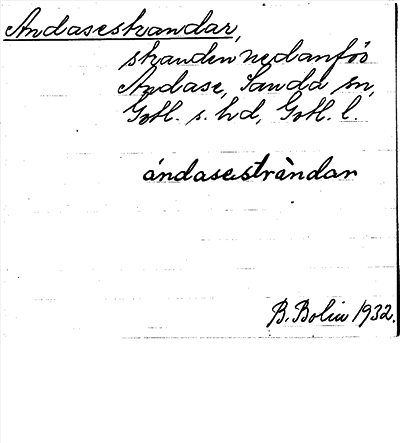 Andasestrandar,
stranden nedanför
Andase, Sanda sn,
Gotl. s. hd, Gotl. l.
ándasestràndar
B. Bolin 1932.